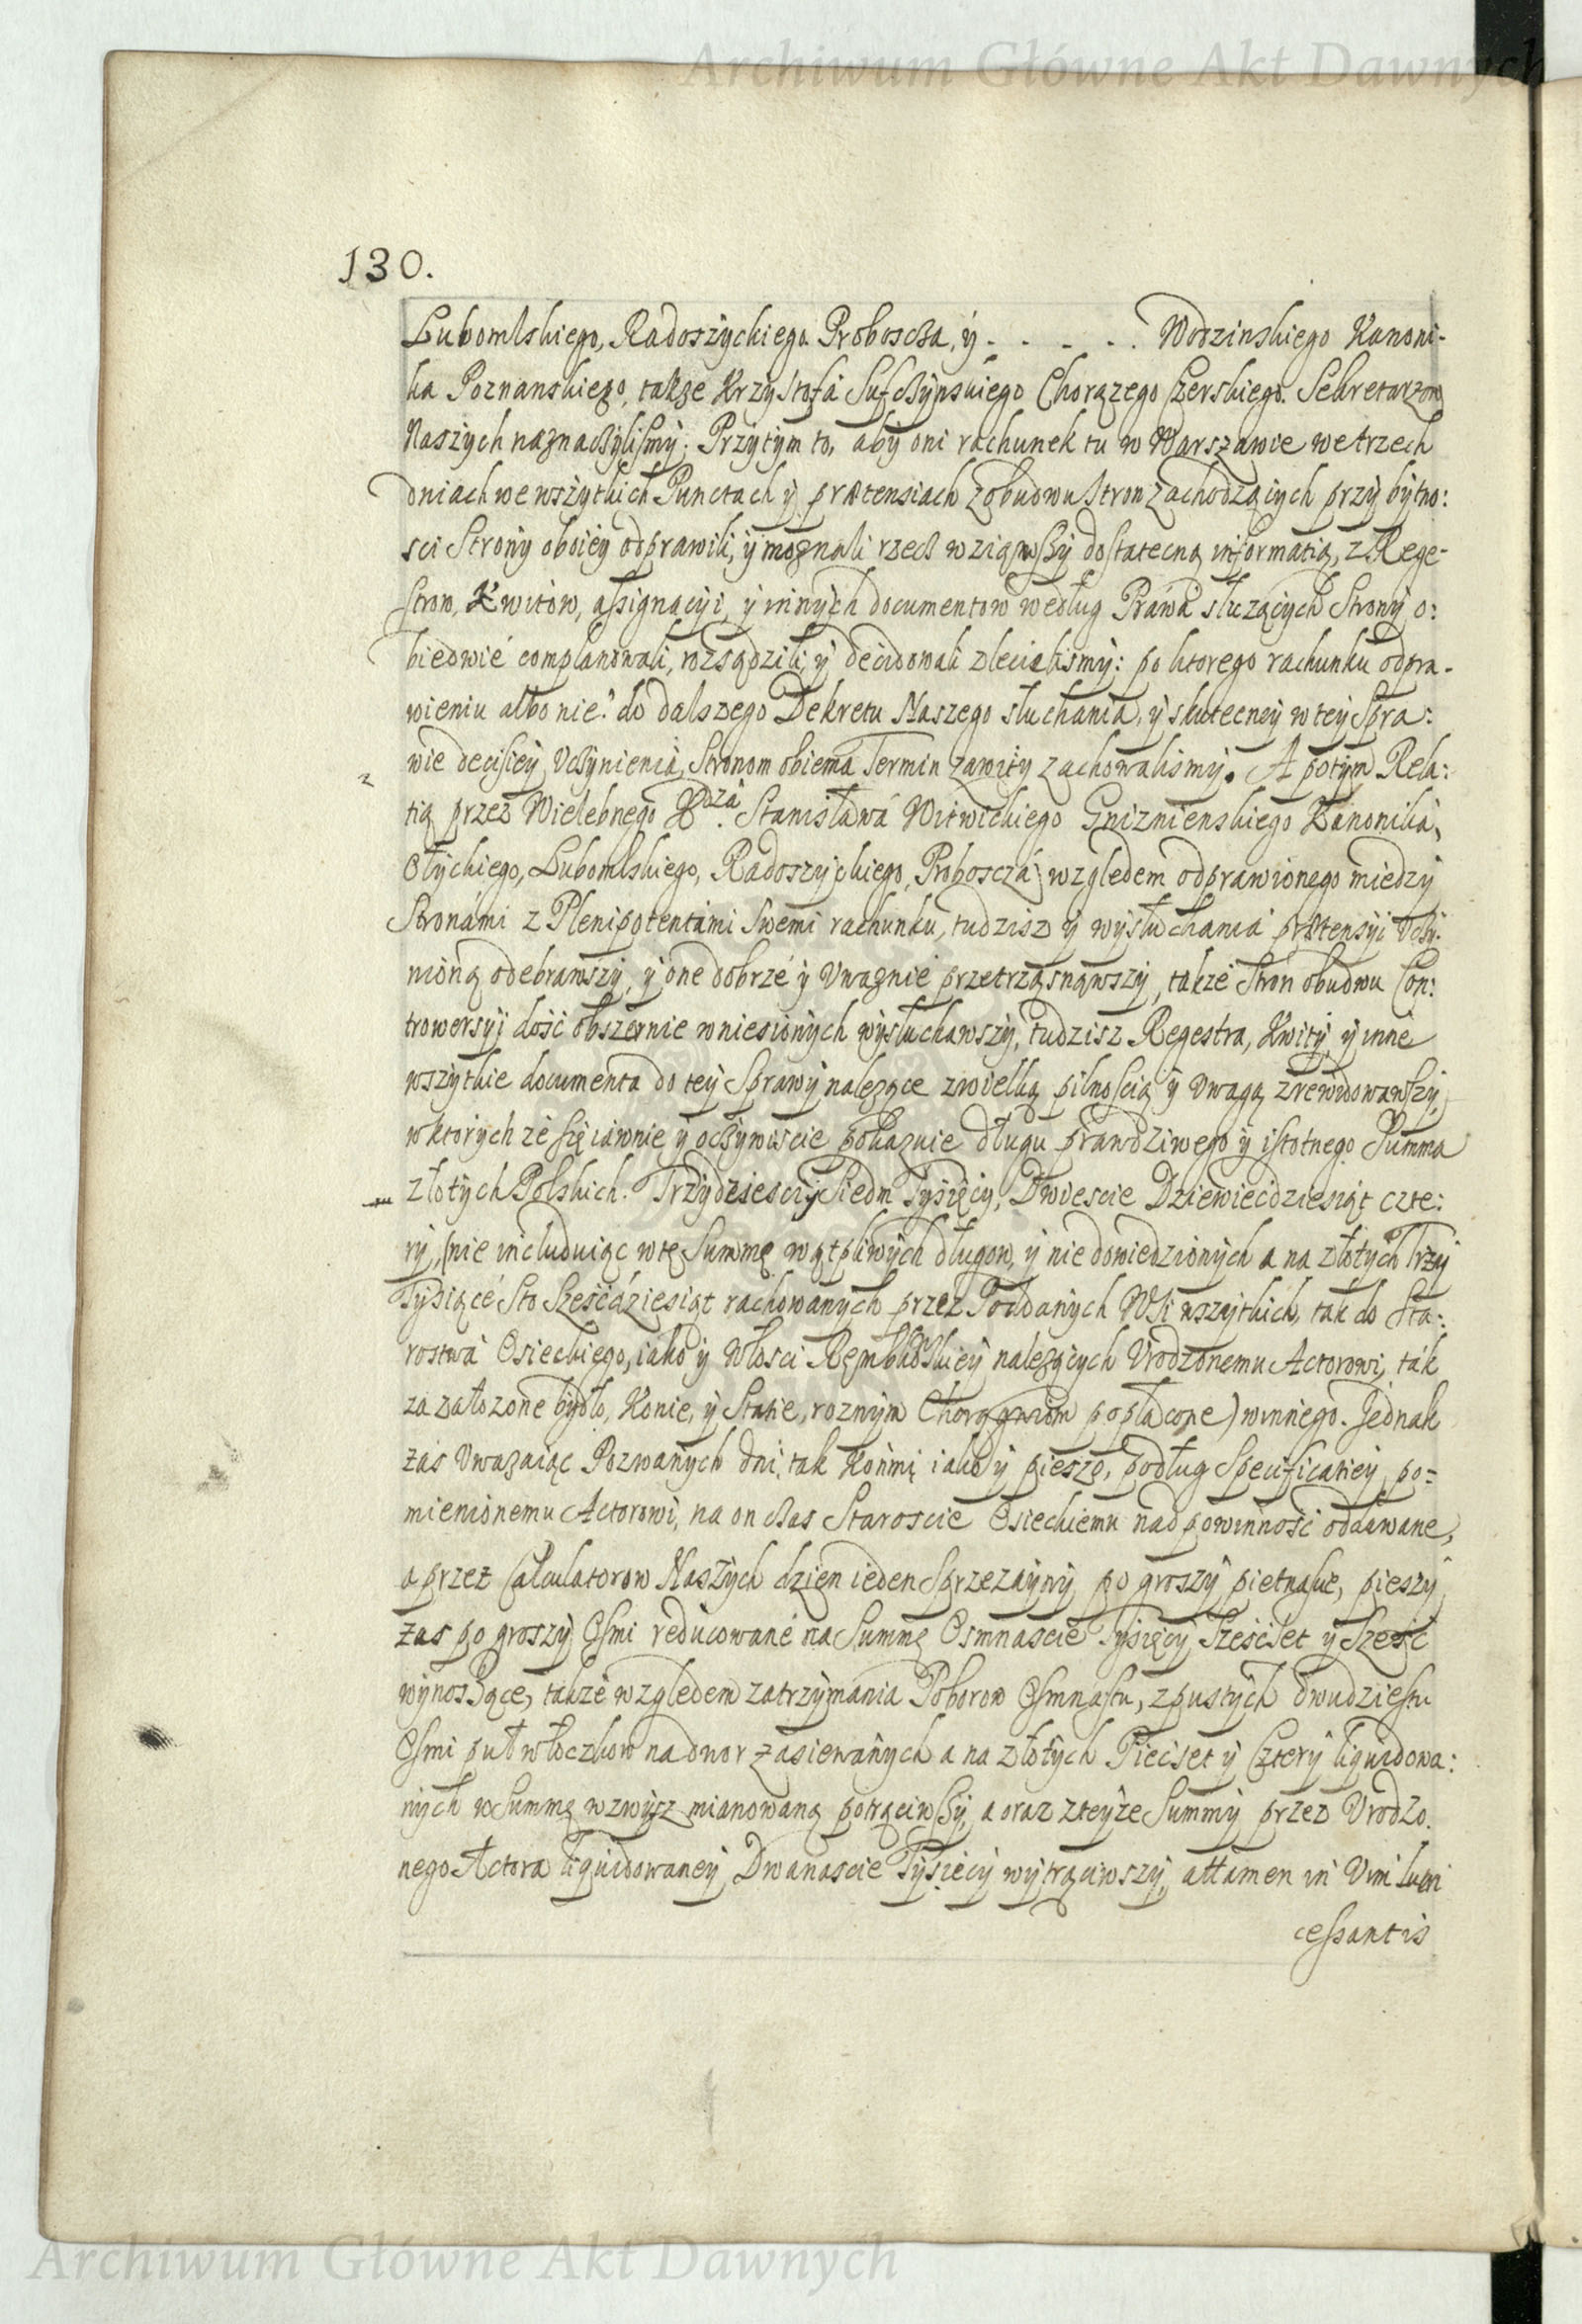 Archiwum Główne Akt Dawnych
130.
Lubomlskiego, Radoszyckiego Proboscza, ÿ . . . . . . Wodzinskiego Kanoni-
ka Poznanskiego, także Krzysztofa Sufczÿnskiego Chorązego Czerskiego. Sekretarzow
Naszÿch naznaczÿlismÿ; Przÿtÿm to, abÿ oni rachunek tu w Warszawie we trzech
dniach we wszÿtkich Punctach ÿ prætensiach z obudwu stron zachodzącÿch przÿ bÿtno:
sci Stronÿ oboieÿ odprawili, ÿ uznali rzecz wziąwszÿ dostateczną informatią, z Rege-
strow, Kwitow, assignacÿi, ÿ innÿch documentow według Prawa służącÿch Stronÿ o:
biedwie complanowali, rozsądzili, ÿ decidowali zlecilismÿ: po ktorego rachunku odpra-
wieniu albo nie: do dalszego Dekretu Naszego słuchania, ÿ skutecneÿ w teÿ Spra:
wie decisieÿ Vczÿnienia, Stronom obiema Termin zawitÿ zachowalismÿ. A potÿm Rela:
tią przez Wielebnego Xdza Stanisława Witwickiego Gniznienskiego Kanonika,
Ołÿckiego, Lubomlskiego, Radoszÿckiego, Proboscza względem odprawionego miedzÿ
Stronámi z Plenipotentámi Swemi rachunku, tudzisz ÿ wÿsłuchania prætensÿi Vczÿ-
nioną odebrawszÿ, ÿ one dobrze ÿ Vwaznie przetrząsnąwszÿ, także Stron obudwu Con:
trowersÿi dość obszernie wniesionÿch wÿsłuchawszÿ, tudzisz Regestra, Kwitÿ ÿ inne
wszÿtkie documenta do teÿ Sprawÿ nalezące z wielką pilnością ÿ Vwagą zrewidowawszÿ,
w ktorÿch ze się iáwnie ÿ oczÿwiscie pokazuie długu prawdziwego ÿ istotnego Summa
złotÿch Polskich. Trzÿdziesci ÿ Siedm Tÿsięcÿ, Dwiescie Dziewiecdziesiąt czte:
rÿ, (nie includuiąc w tę Summę wątpliwÿch długow, ÿ nie dowiedzionÿch a na złotÿch Trzÿ
Tÿsiącé Sto Sześćdziesiąt rachowanÿch przez Poddanÿch Wsi wszÿtkich, tak do Sta:
rostwa Osieckiego, iako ÿ Włosci Rembkowskieÿ nalezącÿch Vrodzonemu Actorowi, ták
za założone bÿdło, Konie, ÿ Statie, roznÿm Chorągwiom popłacone) winnego. Jednak
zas Vwazaiąc Pozwanÿch dni, tak końmi iako ÿ pieszo, podług Specificatieÿ po=
mienionemu Actorowi, na on czas Staroscie Osieckiemu nad powinność oddawane,
a przez Calculatorow Naszÿch dzien ieden Sprzezaÿnÿ po groszÿ pietnastu, pieszÿ
zas po groszÿ Osmi reducowané na Summę Osmnascie Tÿsięcÿ Sześćset ÿ Sześć
wÿnoszące, także względem zatrzÿmania Poborow Osmnastu, z pustÿch dwudziestu
Osmi puł włoczkow na dwor zasiewanÿch a na złotÿch Piecset ÿ Czterÿ liquidowa:
nÿch w Summę wzwÿsz mianowaną potrąciwszÿ, a oraz z teÿze Summÿ przez Vrodzo.
nego Actora liquidowaneÿ Dwanascie Tÿsięcÿ wÿtrąciwszÿ, attamen in Vim lucri
cessantis
Archiwum Główne Akt Dawnych